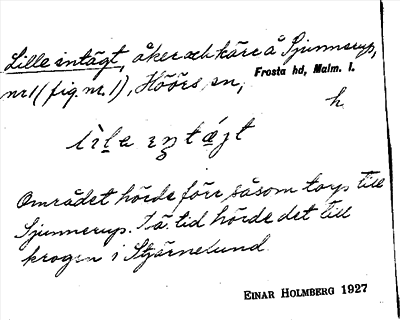 Lille intägt, åker och kärr å Sjunnerup,
nr 1 (fig. nr. 1), Höörs sn, Frosta hd, Malm. l.
h.
Området hörde förr såsom torp till
Sjunnerup. I ä. tid hörde det till
krogen i Stjärnelund.
EINAR HOLMBERG 1927